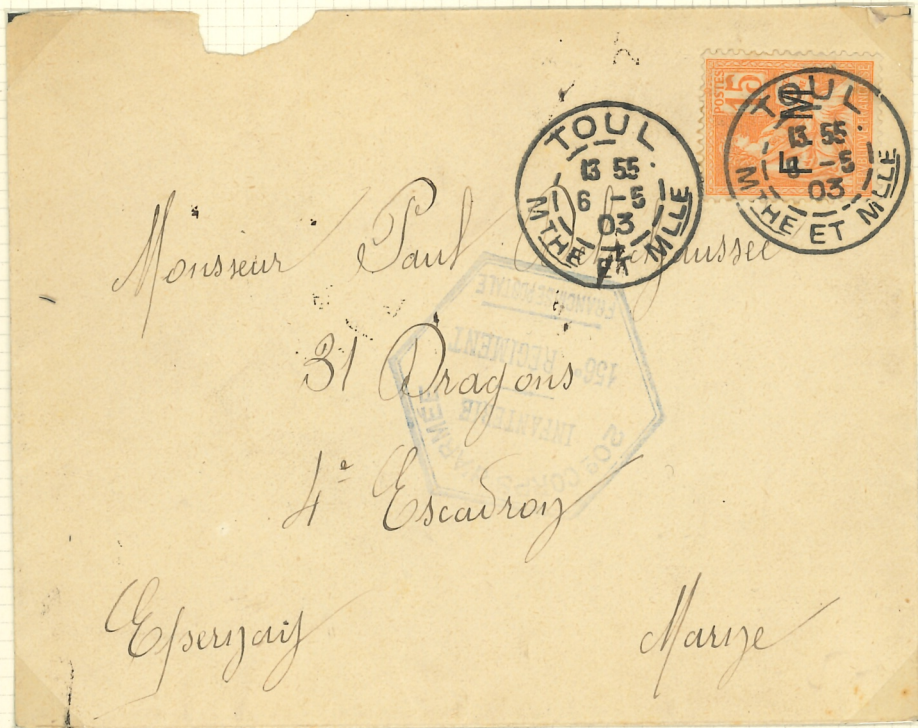 POSTES
15
F. M.
TOUL
13 55
6 -5
03
MTHE ET MLLE
TOUL
13 55
6 -5
03
MTHE ET MLLE
Monsieur Paul
31 Dragons
4e Escadron
Epernay Marne
20e CORPS D'ARMEE
INFANTERIE
156e REGIMENT
FRANCHISE POSTALE